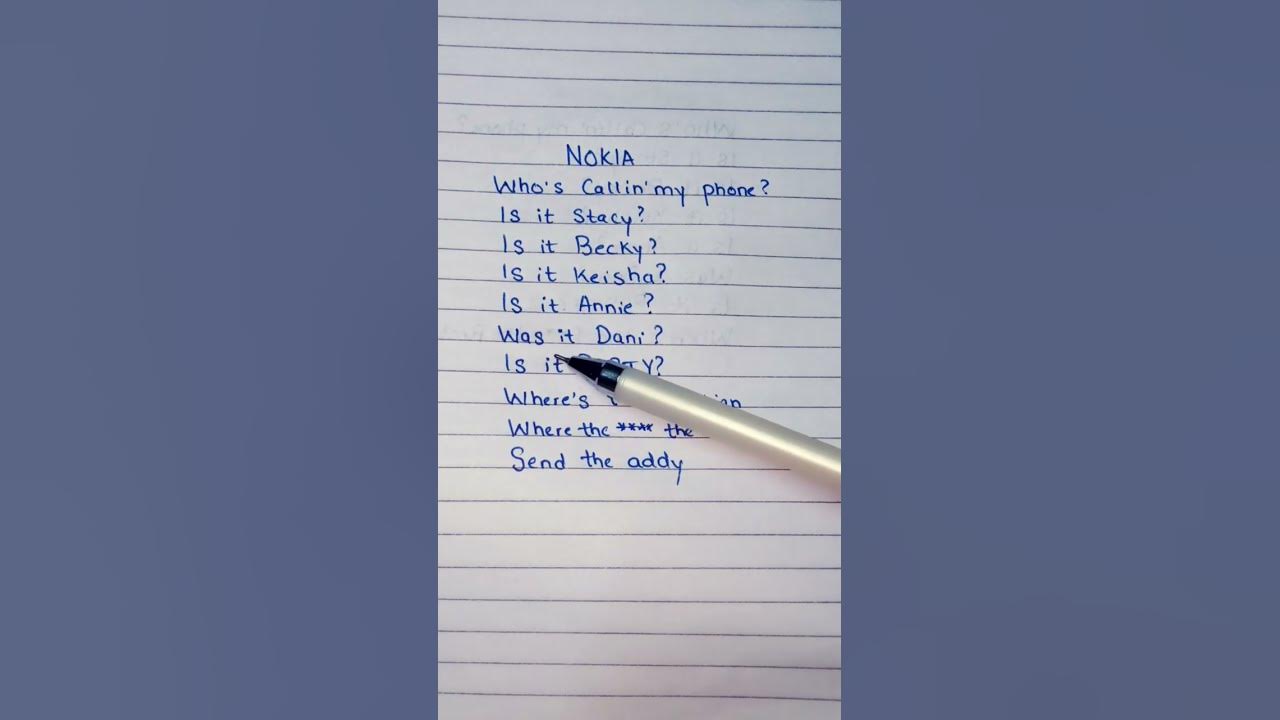 NOKIA
Who's Callin' my phone?
Is it Stacy?
Is it Becky?
Is it Keisha?
Is it Annie?
Was it Dani?
Is it
Where's
Where the **** the
Send the addy